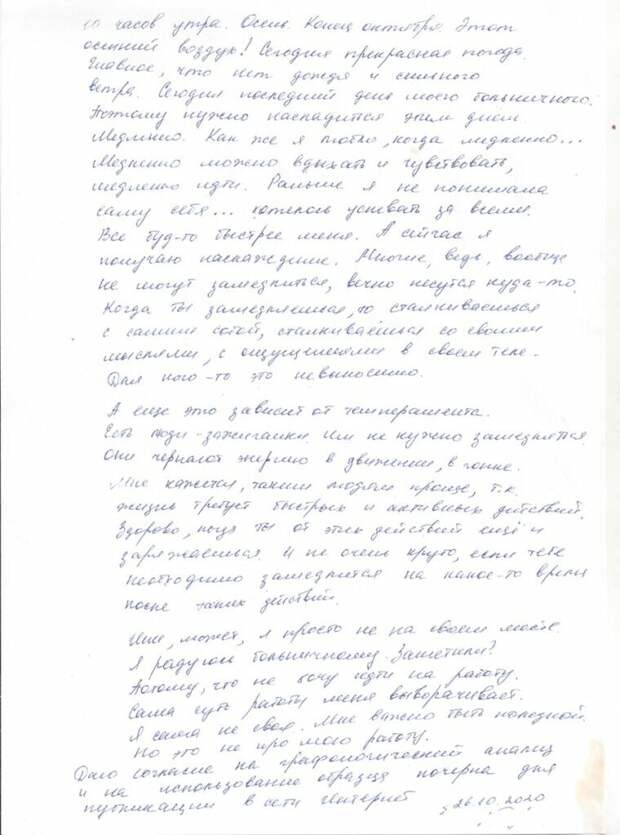 10 часов утра. Осень. Конец октября. Этот
осенний воздух! Сегодня прекрасная погода.
Главное, что нет дождя и сильного
ветра. Сегодня последний день моего больничного.
Поэтому нужно насладится этим днем.
Медленно. Как же я люблю, когда медленно...
Медленно можно вдыхать и чувствовать,
медленно идти. Раньше я не понимала
саму себя... хотелось успевать за всеми.
Все буд-то быстрее меня. А сейчас я
получаю наслаждение. Многие, ведь, вообще
не могут замедлиться, вечно несутся куда-то.
Когда ты замедляешься, то сталкиваешься
с самим собой, сталкиваешься со своими
мыслями, с ощущениями в своем теле.
Для кого-то это невыносимо.
А еще это зависит от темперамента.
Есть люди-зажигалки. Им не нужно замедляться.
Они черпают энергию в движении, в гонке.
Мне кажется, таким людям проще, т.к.
жизнь требует быстрых и активных действий.
Здорово, когда ты от этих действий ещё и
заряжаешься. И не очень круто, если тебе
необходимо замедлится на какое-то время
после таких действий.
Или, может, я просто не на своем месте.
Я радуюсь больничному. Заметили?
Потому, что не хочу идти на работу.
Сама суть работы меня выворачивает.
Я сама не своя. Мне важно быть полезной.
Но это не про мою работу.
Даю согласие на графологический анализ
и на использование образца почерка для
публикации в сети Интернет
26.10.2020